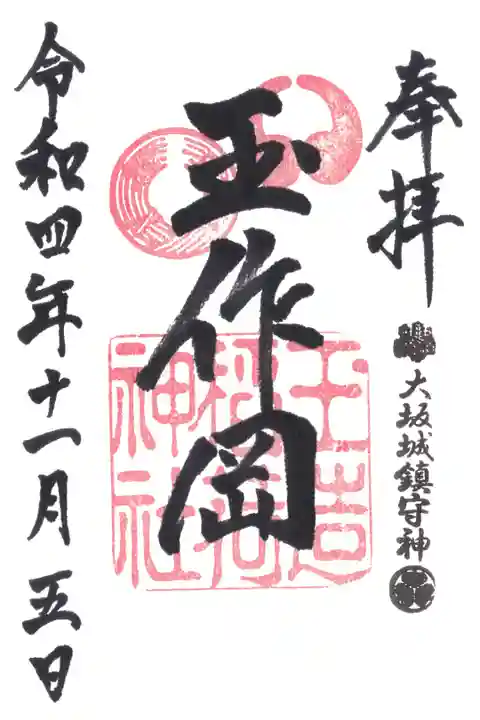 奉拝
大坂城鎮守神
玉作岡
玉造
稲荷
神社
令和四年十一月五日